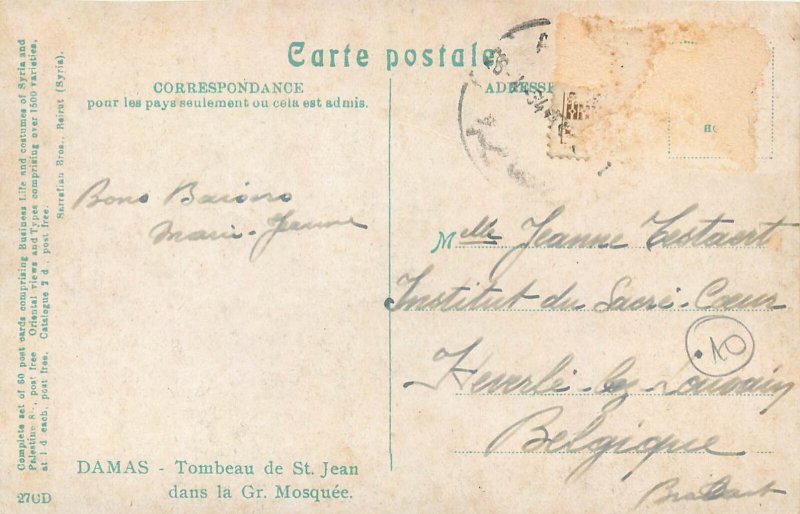 Carte postale
CORRESPONDANCE
pour les pays seulement ou cela est admis.
ADRESSE
Complete set of 60 post cards comprising Business Life and costumes of Syria and
Palestine 8/-, post free. Oriental views and Types comprising over 1500 varieties,
at 1 d each, post free. Catalogue 2 d., post free.
Sarrafian Bros., Beirut (Syria).
Bons Baisers
Marie-Jeanne
Melle Jeanne Testaert
Institut du Sacré-Cœur
Heverlé-lez-Louvain
Belgique
Brabant
10
DAMAS - Tombeau de St. Jean
dans la Gr. Mosquée.
270D